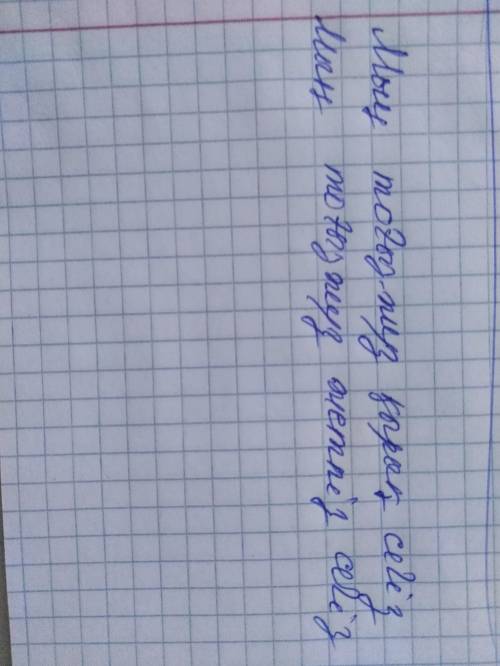 Мың тоғыз-жүз қырық сегіз
Мың тоғыз жүз жетпіс сегіз